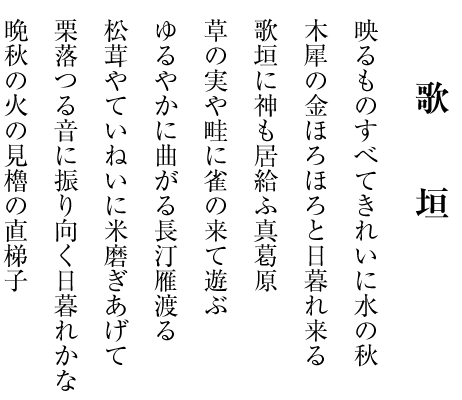 歌垣
映るものすべてきれいに水の秋
木犀の金ほろほろと日暮れ来る
歌垣に神も居給ふ真葛原
草の実や畦に雀の来て遊ぶ
ゆるやかに曲がる長汀雁渡る
松茸やていねいに米磨ぎあげて
栗落つる音に振り向く日暮れかな
晩秋の火の見櫓の直梯子